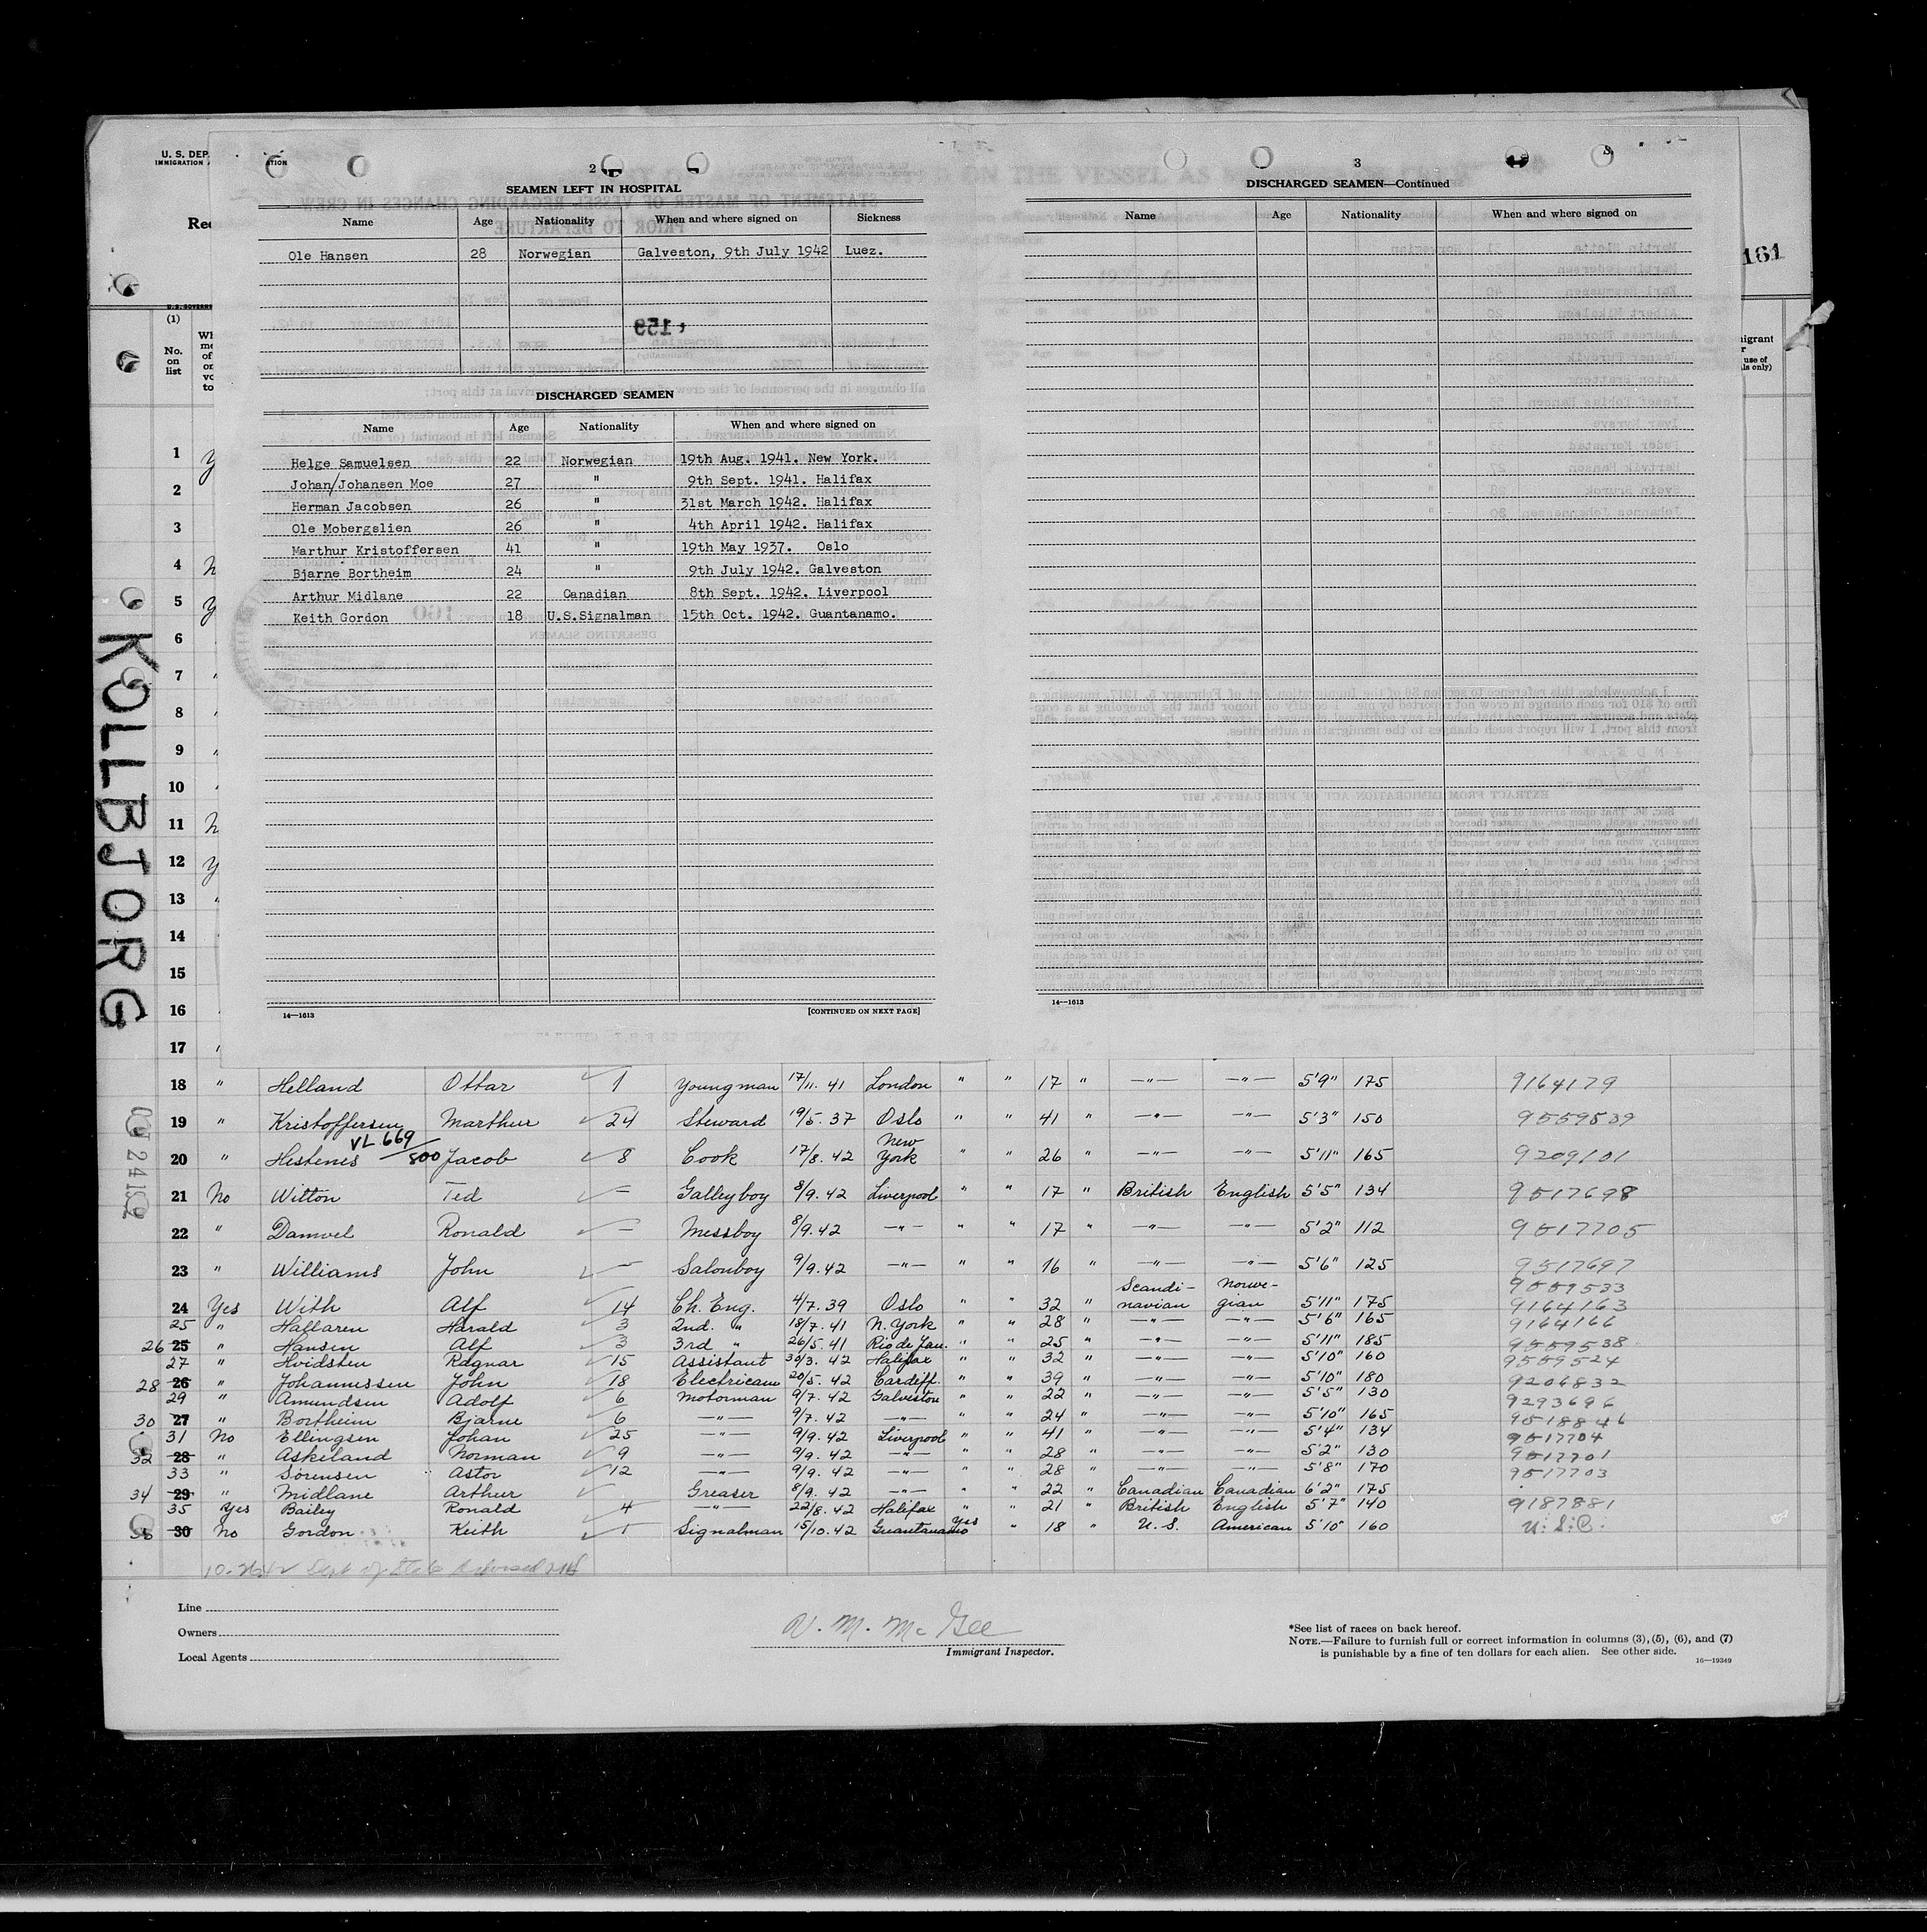 U. S. DEP
IMMIGRATION
ATION
2
SEAMEN LEFT IN HOSPITAL
Name Age Nationality When and where signed on Sickness
Ole Hansen 28 Norwegian Galveston, 9th July 1942 Luez.
159
DISCHARGED SEAMEN
Name Age Nationality When and where signed on
Helge Samuelsen 22 Norwegian 19th Aug. 1941. New York.
Johan/Johansen Moe 27 " 9th Sept. 1941. Halifax
Herman Jacobsen 26 " 31st March 1942. Halifax
Ole Mobergslien 26 " 4th April 1942. Halifax
Marthur Kristoffersen 41 " 19th May 1937. Oslo
Bjarne Bortheim 24 " 9th July 1942. Galveston
Arthur Midlane 22 Canadian 8th Sept. 1942. Liverpool
Keith Gordon 18 U.S.Signalman 15th Oct. 1942. Guantanamo.
14—1613 [CONTINUED ON NEXT PAGE]
3
DISCHARGED SEAMEN—Continued
Name Age Nationality When and where signed on
14—1613
161
(1)
No.
on
list
KOLLBJORG
1
2
3
4
5
6
7
8
9
10
11
12
13
14
15
16
17
18 " Helland Ottar 1 Youngman 17/11. 41 London " " 17 " —"— —"— 5'9" 175 9164179
19 " Kristoffersen Marthur 24 Steward 19/5. 37 Oslo " " 41 " —"— —"— 5'3" 150 9559539
VL 669/800
20 " Hestenes Jacob 8 Cook 17/8. 42 New York " " 26 " —"— —"— 5'11" 165 9209101
21 No Witton Ted — Galleyboy 8/9. 42 Liverpool " " 17 " British English 5'5" 134 9517698
22 " Damvel Ronald — Messboy 8/9. 42 —"— " " 17 " —"— —"— 5'2" 112 9517705
23 " Williams John — Salonboy 9/9. 42 —"— " " 16 " —"— —"— 5'6" 125 9517697
24 Yes With Alf 14 Ch. Eng. 4/7. 39 Oslo " " 32 " Scandinavian Norwegian 5'11" 175 9559533
9164163
25 " Hallaren Harald 3 2nd. " 18/7. 41 N. York " " 28 " —"— —"— 5'6" 165 9164166
26 25 " Hansen Alf 3 3rd " 26/5. 41 Rio de Jan. " " 25 " —"— —"— 5'11" 185 9559538
27 " Hvidsten Ragnar 15 Assistant 30/3. 42 Halifax " " 32 " —"— —"— 5'10" 160 9559524
28 26 " Johannissen John 18 Electrican 20/5. 42 Cardiff. " " 39 " —"— —"— 5'10" 180 9206832
29 " Amundsen Adolf 6 Motorman 9/7. 42 Galveston " " 22 " —"— —"— 5'5" 130 9293696
30 27 " Bortheim Bjarne 6 —"— 9/7. 42 —"— " " 24 " —"— —"— 5'10" 165 9518846
31 No Ellingsen Johan 25 —"— 9/9. 42 Liverpool " " 41 " —"— —"— 5'4" 134 9517704
32 28 " Askeland Norman 9 —"— 9/9. 42 —"— " " 28 " —"— —"— 5'2" 130 9517701
33 " Sorensen Astor 12 —"— 9/9. 42 —"— " " 28 " —"— —"— 5'8" 170 9517703
34 29 " Midlane Arthur Greaser 8/9. 42 —"— " " 22 " Canadian Canadian 6'2" 175
35 Yes Bailey Ronald 4 —"— 22/8. 42 Halifax " " 21 " British English 5'7" 140 9187881
30 No Gordon Keith 1 Signalman 15/10. 42 Guantanamo Yes " 18 " U. S. American 5'10" 160 U. S. C.
Line
Owners
Local Agents
V. M. McGee
Immigrant Inspector.
*See list of races on back hereof.
NOTE.—Failure to furnish full or correct information in columns (3), (5), (6), and (7)
is punishable by a fine of ten dollars for each alien. See other side.
16—19349